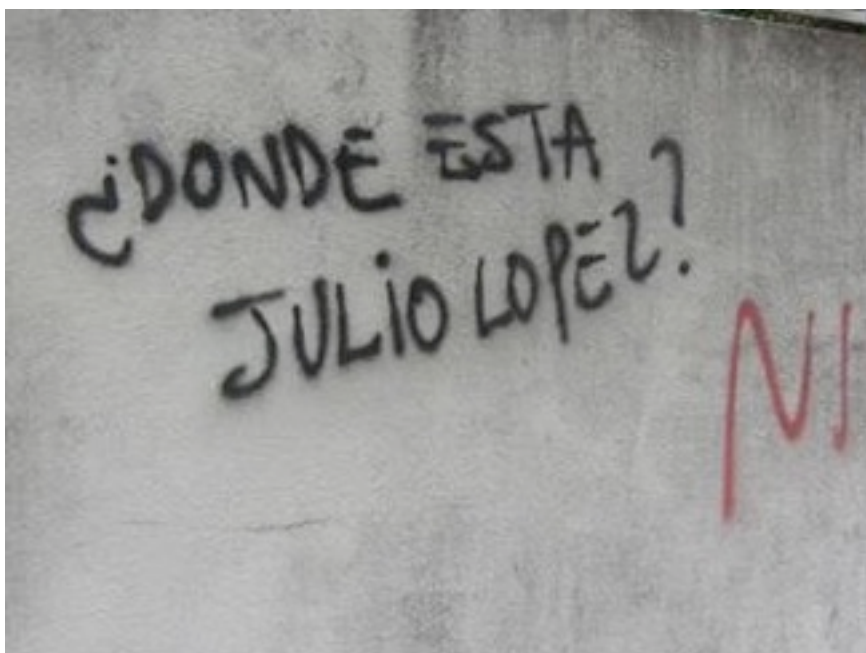 ¿DONDE ESTA
JULIO LOPEZ?
NI